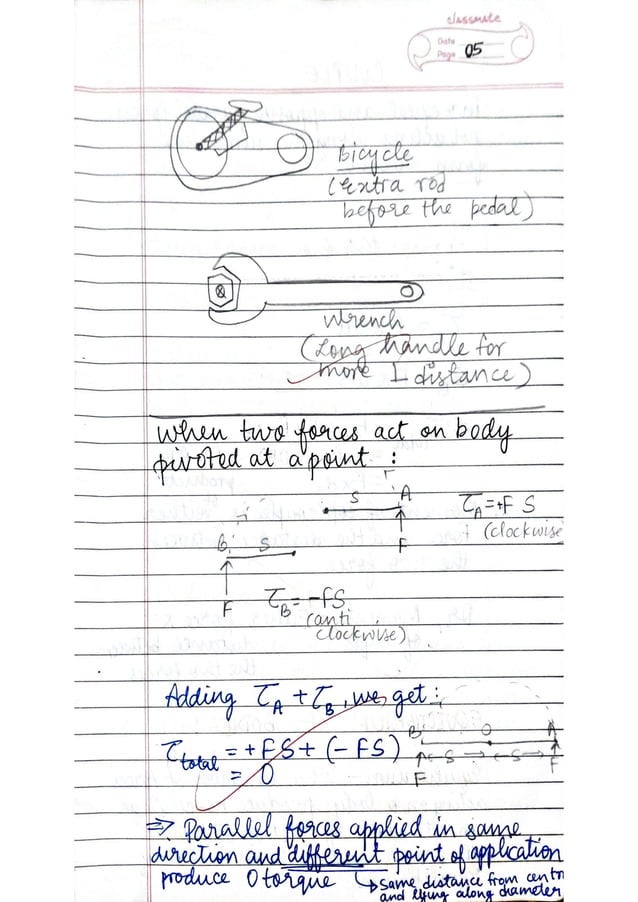 classmate
Date
Page 05
Bicycle
(Extra rod
before the pedal)
Wrench
(Long handle for
more ⊥ distance)
When two forces act on body
pivoted at a point :
S A
τA = +F S
(clockwise
F
B S
F
τB = -FS
(anti
clockwise)
Adding τA + τB, we get :
τtotal = +FS + (-FS)
= 0
B O A
← S → ← S →
F F
⇒ Parallel forces applied in same
direction and different point of application
produce 0 torque
↳ Same distance from centr
and lying along diameter